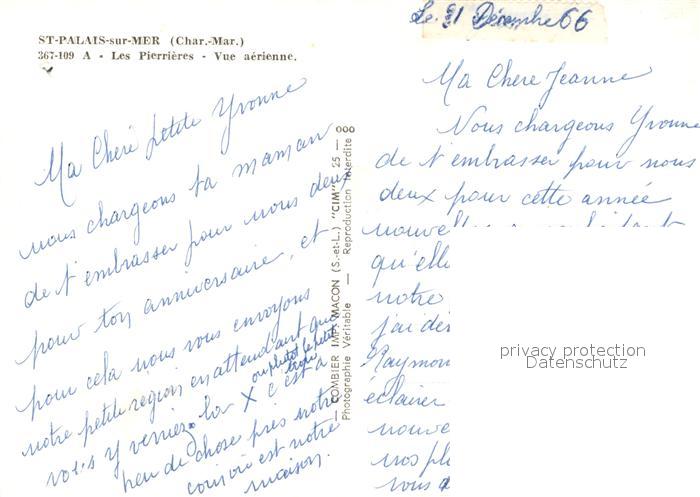 ST-PALAIS-sur-MER (Char.-Mar.)
367-109 A - Les Pierrières - Vue aérienne.
Ma Chere petite Yvonne
nous chargeons ta maman
de t'embrasser pour nous deux
pour ton anniversaire, et
pour cela nous vous envoyons
notre petite région en attendant que
vous y verriez la X c'est a
ou plutot le petit
trou
peu de chose près notre
coin ou est notre
maison.
COMBIER IMP. MACON (S.-et-L.) "CIM" - 25 -
Photographie Véritable — Reproduction interdite
Le 31 Décembre 66
Ma Chere Jeanne
Nous chargeons Yvonne
de t'embrasser pour nous
deux pour cette année
nouvelle
qu'elle
notre
j'ai dé
Raymon
éclairer
nouve
nos pl
vous
privacy protection
Datenschutz